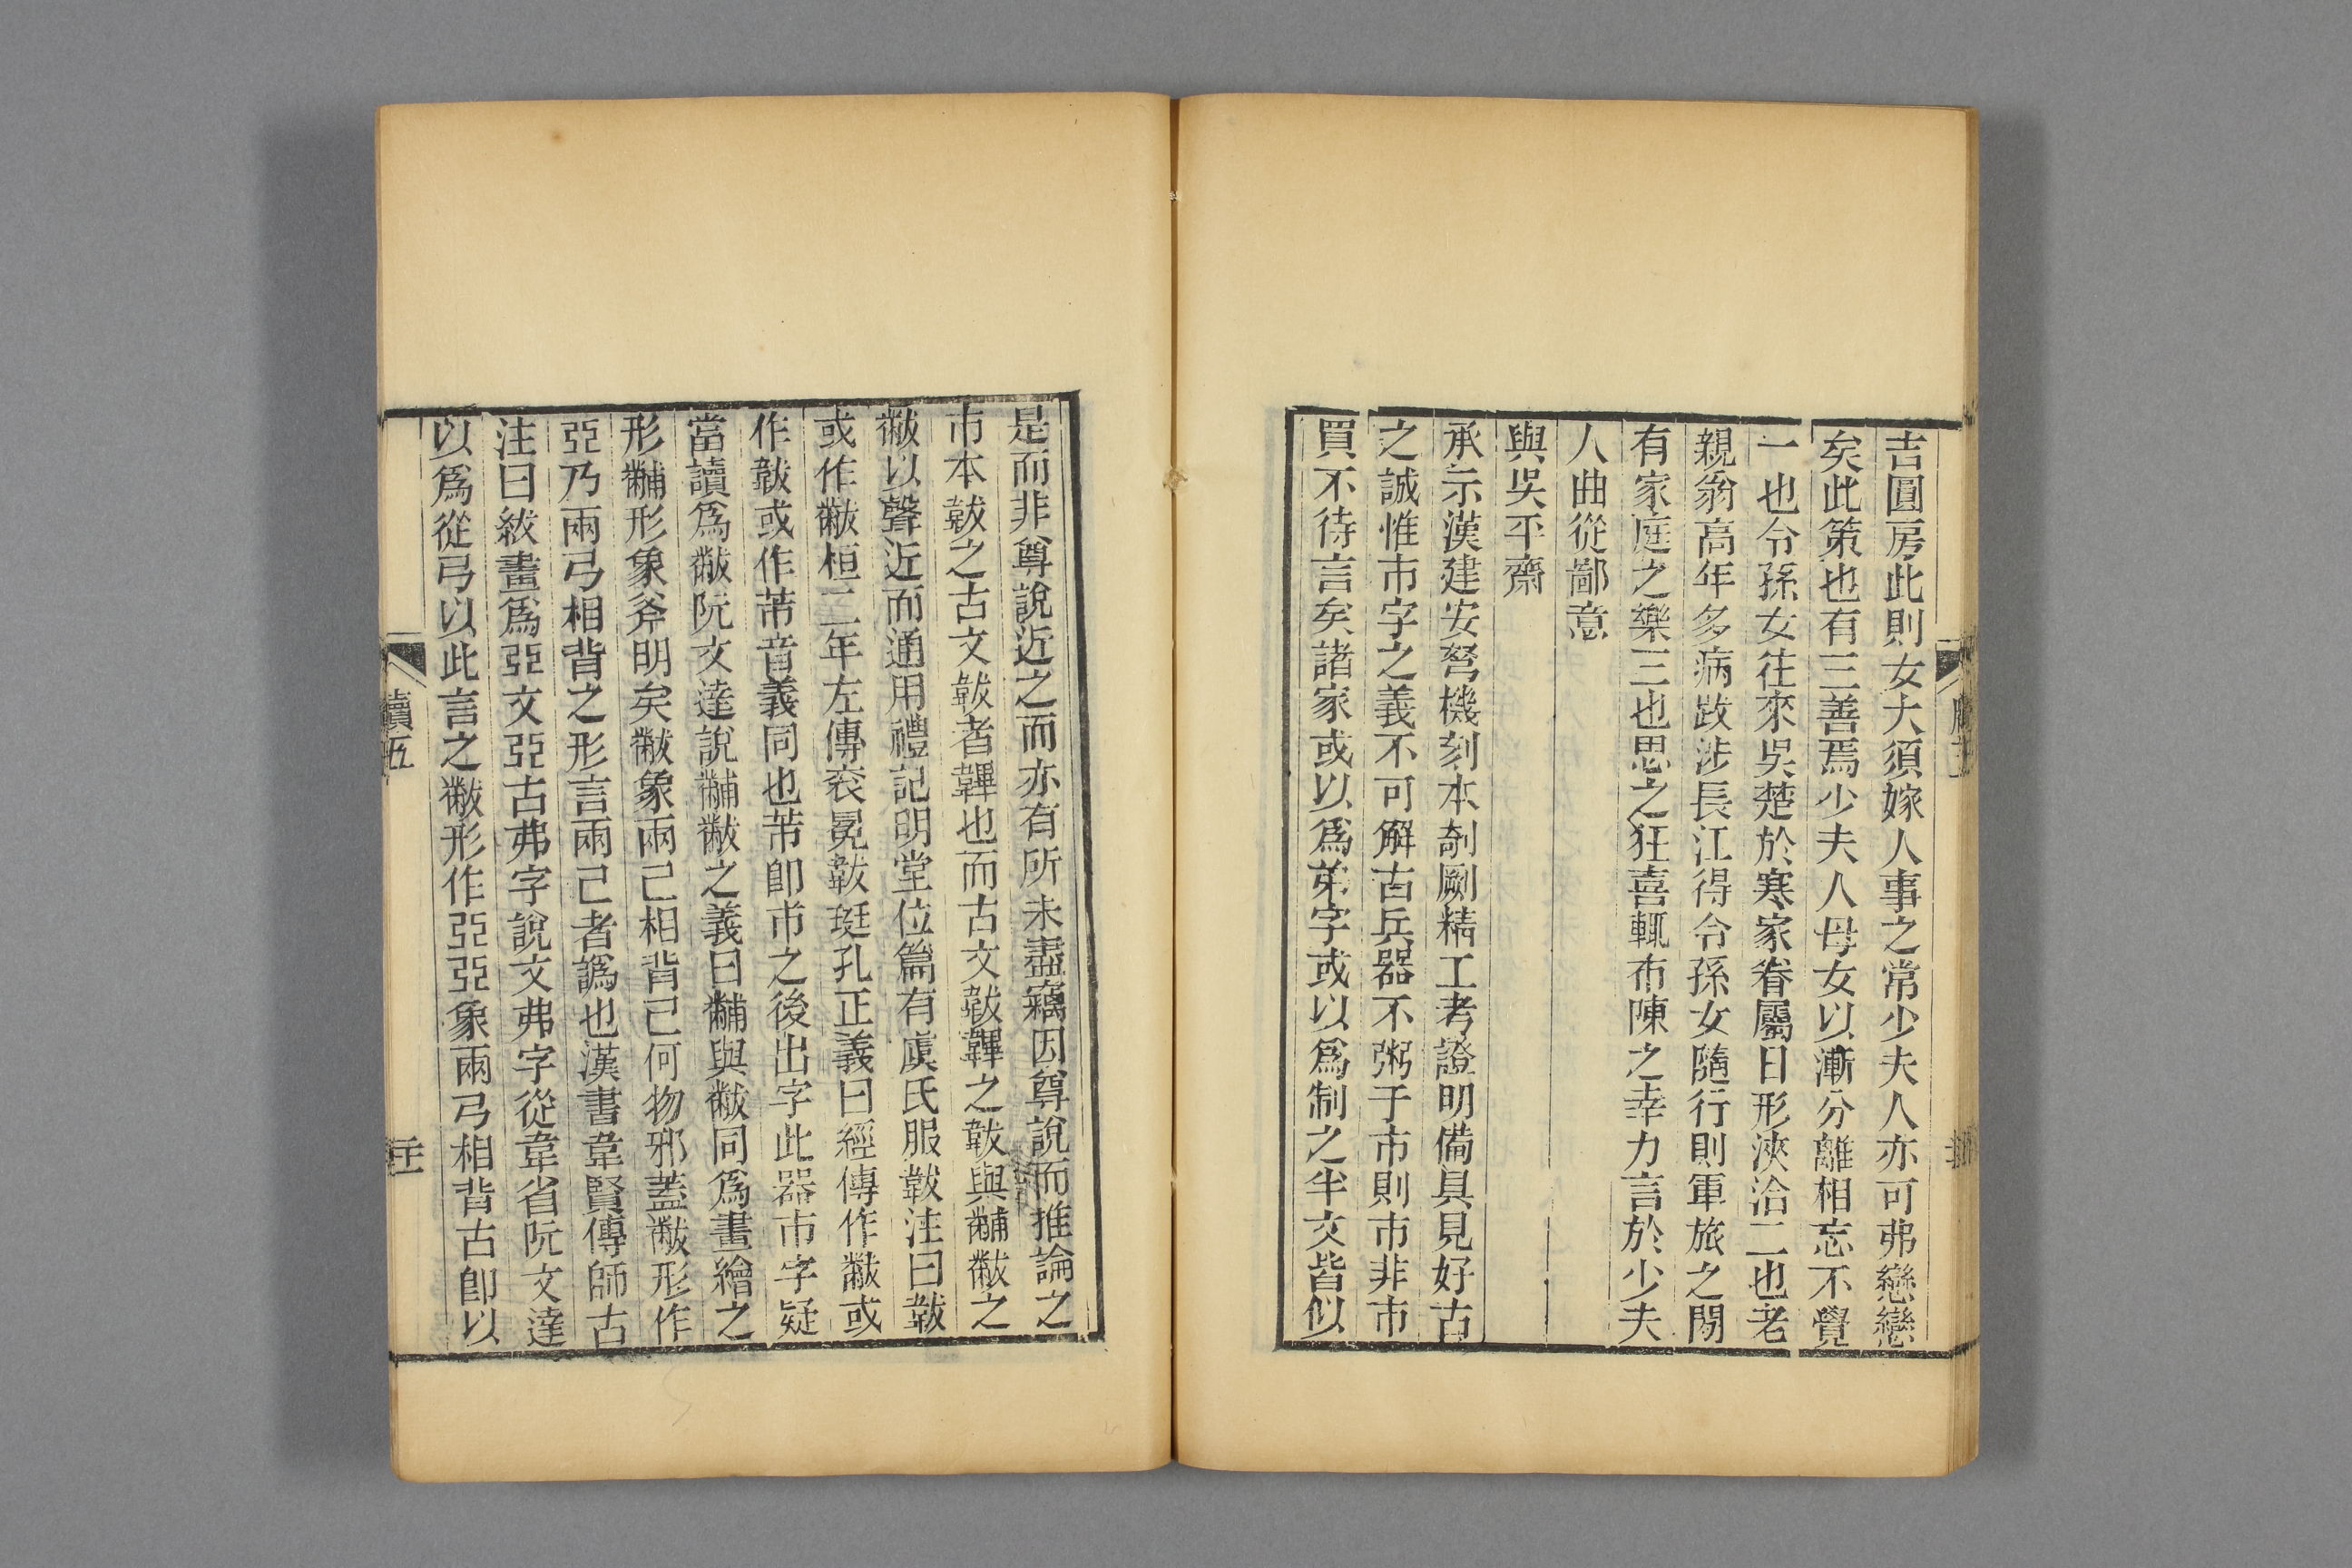 吉圓房此則女大須嫁人事之常少夫人亦可弗戀戀
矣此策也有三善焉少夫人母女以漸分離相忘不覺
一也令孫女往來吳楚於寒家眷屬日形浹洽二也老
親翁高年多病跋涉長江得令孫女隨行則軍旅之閒
有家庭之樂三也思之狂喜輒布陳之幸力言於少夫
人曲從鄙意
與吳平齋
承示漢建安弩機刻本剞劂精工考證明備具見好古
之誠惟市字之義不可解古兵器不粥于市則市非市
買不待言矣諸家或以爲弟字或以爲制之半文皆似
是而非尊說近之而亦有所未盡竊因尊說而推論之
巿本韍之古文韍者韠也而古文韍韠之韍與黼黻之
黻以聲近而通用禮記明堂位篇有虞氏服韍注曰韍
或作黻桓二年左傳袞冕韍珽孔正義曰經傳作黻或
作韍或作芾音義同也芾卽巿之後出字此器市字疑
當讀爲黻阮文達說黼黻之義曰黼與黻同爲畫繪之
形黼形象斧明矣黻象兩己相背己何物邪蓋黻形作
亞乃兩弓相背之形言兩己者譌也漢書韋賢傳師古
注曰紱畫爲亞文亞古弗字說文弗字從韋省阮文達
以爲從弓以此言之黻形作亞亞象兩弓相背古卽以
續五